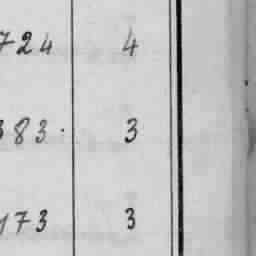 724 4
383. 3
173 3